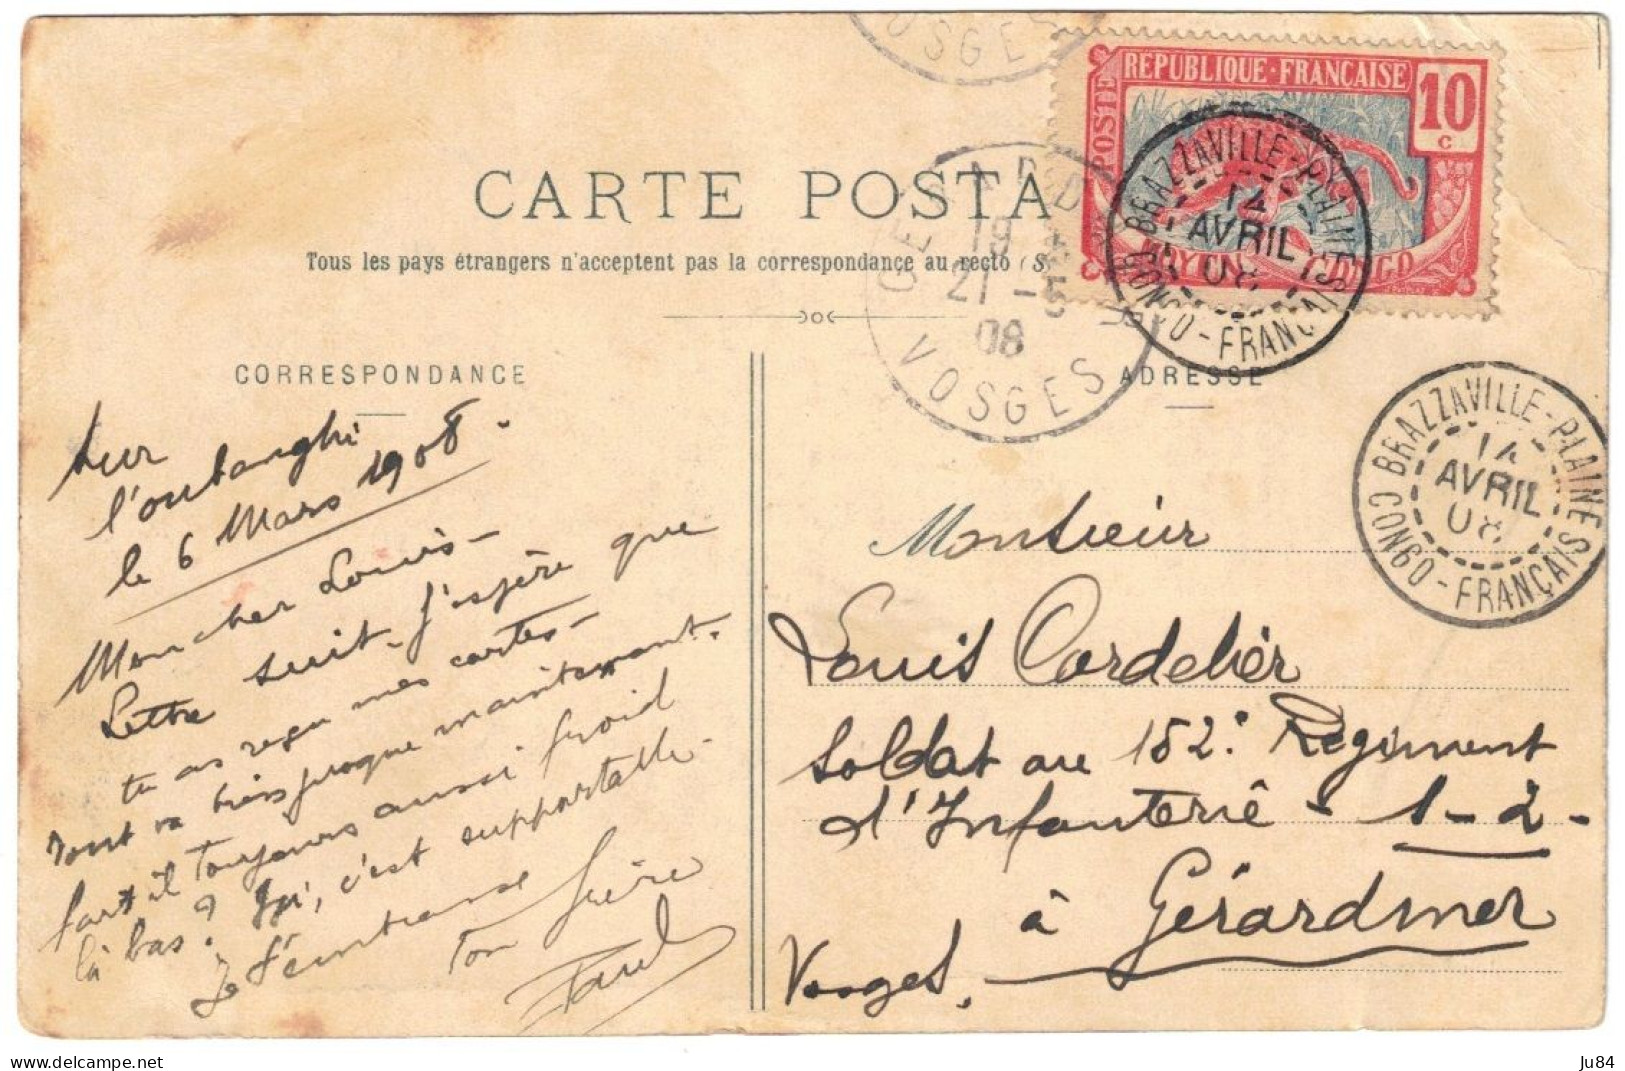 RÉPUBLIQUE·FRANÇAISE
10
c
POSTES
CARTE POSTA
Tous les pays étrangers n'acceptent pas la correspondance au recto (S
BRAZZAVILLE-PLAINES
14
AVRIL
08
CONGO-FRANÇAIS
GERARDMER
19
21 -5
08
VOSGES
VOSGES
CORRESPONDANCE
ADRESSE
BRAZZAVILLE-PLAINES
14
AVRIL
08
CONGO-FRANÇAIS
sur
l'oubanghi
le 6 Mars 1908.
Mon cher Louis-
Lettre suit. J'espère que
tu as reçu mes cartes-
Tout va bien jusque maintenant.
Fait il toujours aussi froid
là bas? Ici, c'est supportable-
Je t'embrasse
ton frère
Paul
Monsieur
Louis Cordelier
Soldat au 152e Régiment
d'Infanterie - 1-2-
à Gérardmer
Vosges.
Ju84